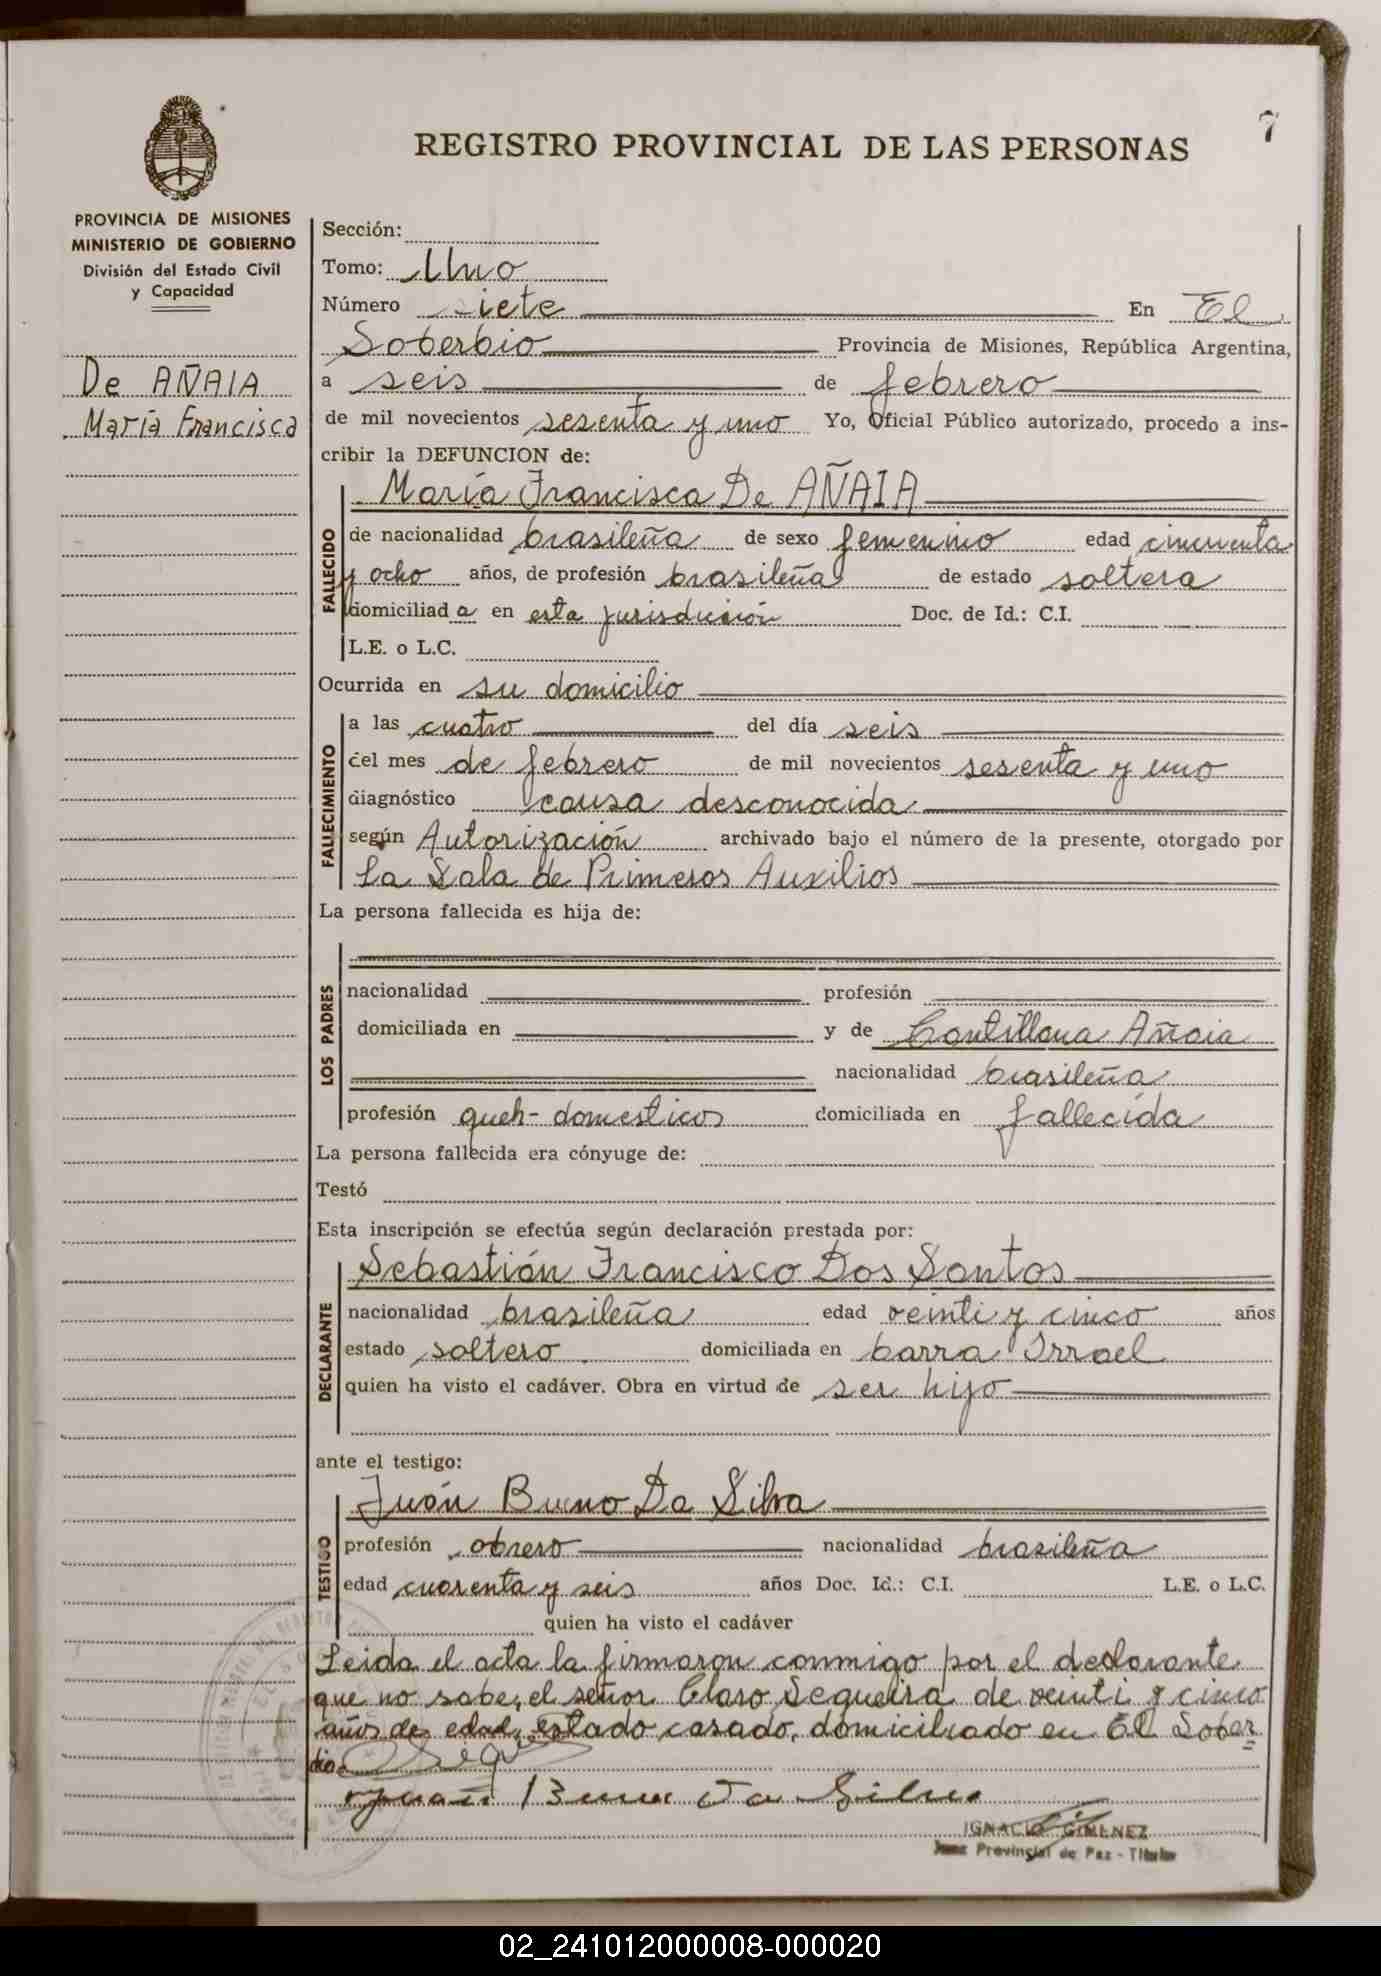 7
REGISTRO PROVINCIAL DE LAS PERSONAS
PROVINCIA DE MISIONES
MINISTERIO DE GOBIERNO
División del Estado Civil
y Capacidad
De AÑAIA
María Francisca
Sección:
Tomo: Uno
Número siete En El
Soberbio Provincia de Misiones, República Argentina,
a seis de febrero
de mil novecientos sesenta y uno Yo, Oficial Público autorizado, procedo a ins-
cribir la DEFUNCION de:
María Francisca De AÑAIA
FALLECIDO
de nacionalidad brasileña de sexo femenino edad cincuenta
y ocho años, de profesión brasileña de estado soltera
domiciliad a en esta jurisdicción Doc. de Id.: C.I.
L.E. o L.C.
Ocurrida en su domicilio
FALLECIMIENTO
a las cuatro del día seis
del mes de febrero de mil novecientos sesenta y uno
diagnóstico causa desconocida
según Autorización archivado bajo el número de la presente, otorgado por
La Sala de Primeros Auxilios
La persona fallecida es hija de:
LOS PADRES
nacionalidad profesión
domiciliada en y de Añaia
nacionalidad brasileña
profesión queh- domesticos domiciliada en fallecida
La persona fallecida era cónyuge de:
Testó
Esta inscripción se efectúa según declaración prestada por:
Sebastián Francisco Dos Santos
DECLARANTE
nacionalidad brasileña edad veinti y cinco años
estado soltero domiciliada en barra Irrael
quien ha visto el cadáver. Obra en virtud de ser hijo
ante el testigo:
Juán Bueno Da Silva
TESTIGO
profesión obrero nacionalidad brasileña
edad cuarenta y seis años Doc. Id.: C.I. L.E. o L.C.
quien ha visto el cadáver
Leida el acta la firmaron conmigo por el declarante
que no sabe, el señor Claro Sequeira de veinti y cinco
años de edad, estado casado, domiciliado en El Sober
bio
Juan Bueno Da Silva
IGNACIO GIMENEZ
Juez Provincial de Paz - Titular
02_241012000008-000020